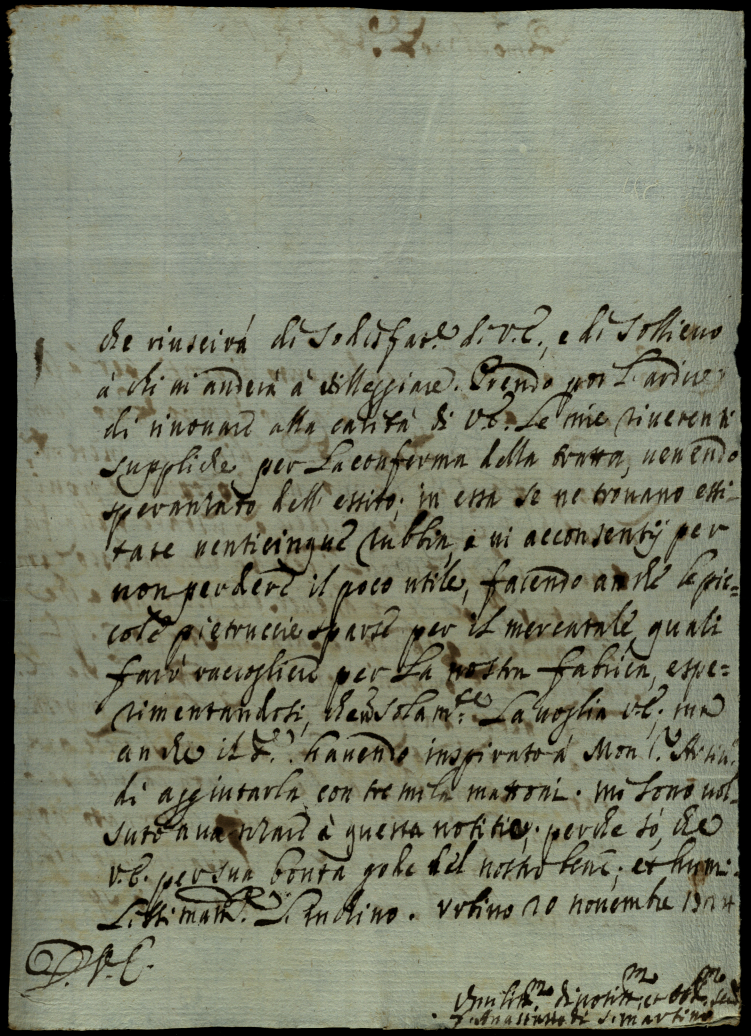 che riuscirà di sodisfat.e d. V.E., e di sollievo
à chi vi anderà à villeggiare. Prendo poi l'ardire
di rinovare alla carità di V.E. le mie riverenti
suppliche per la conferma della tratta, venendo
speranzato dell'essito; in essa se ne trovano essi-
tate venticinque rubbia, e vi acconsentij per
non perdere il poco utile, facendo anche le pic-
cole pietruccie sparse per il mercatale, quali
farò raccogliere per la nostra fabrica, espe-
rimentandosi, che solam.te la voglia V.E. ma
anche il havendo inspirato à Mon.
di aggiutarla con tre mila mattoni. mi sono vol-
suto avanzare à questa notitia, perche sò, che
V.E. per sua bontà gode del nostro bene; et humi-
lissimam.te l'inchino. Urbino 20 novembre
D. V. E.
Umiliss.m devotiss.m et obb.m
di S. Martino